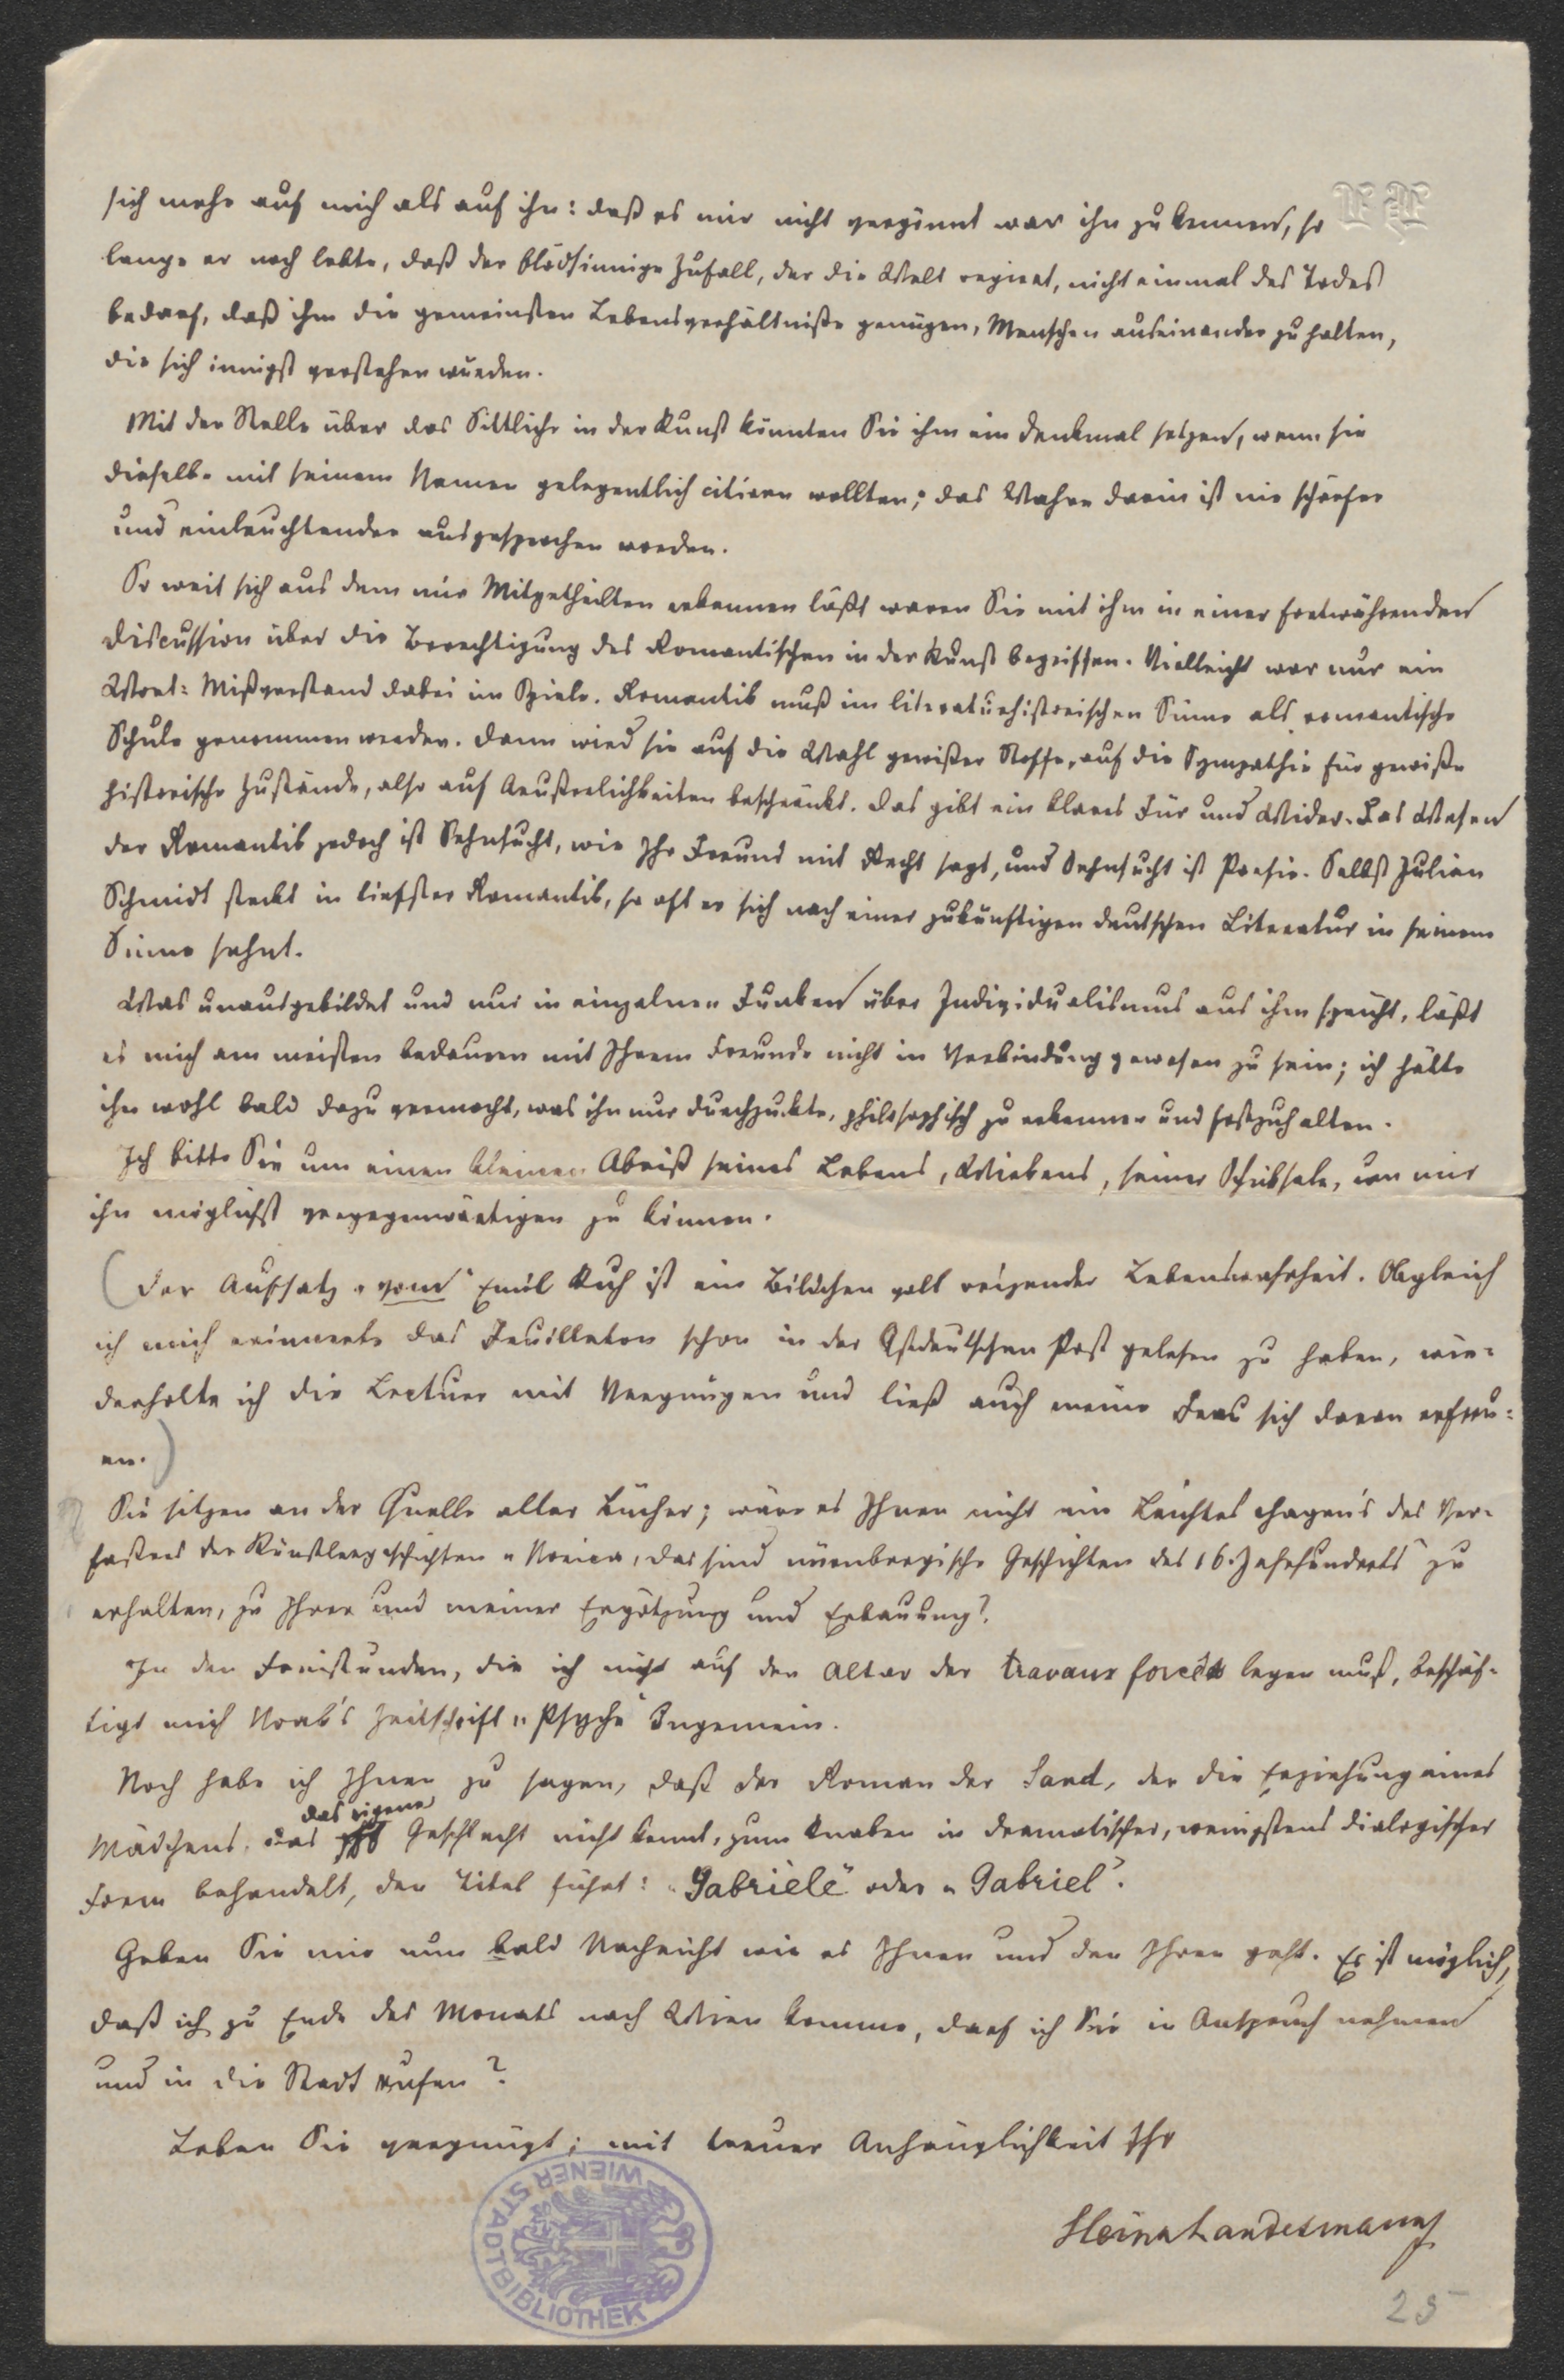 sich mehr auf mich als auf ihn: daß es mir nicht vergönnt war ihn zu kennen, so
lange er noch lebte, daß der blödsinnige Zufall, der die Welt regiert, nicht einmal des Todes
bedarf, daß ihm die gemeinsten Lebensverhältniße genügen, Menschen auseinander zu halten,
die sich innigst verstehen würden.
Mit der Stelle über das Sittliche in der Kunst könnten Sie ihm ein Denkmal setzen, wenn sie
dieselbe mit seinem Namen gelegentlich citiren wollten; das Wahre darin ist nie schärfer
und einleuchtender ausgesprochen worden.
So weit sich aus dem mir Mitgetheilten erkennen läßt waren Sie mit ihm in einer fortwährenden
Discussion über die Berechtigung des Romantischen in der Kunst begriffen. Vielleicht war nur ein
Wort-Mißverstand dabei im Spiele. Romantik muß im literaturhistorischen Sinne als romantische
Schule genommen werden. Dann wird sie auf die Wahl gewißer Stoffe, auf die Sympathie für gewiße
historische Zustände, also auf Aeußerlichkeiten beschränkt. Das gibt ein klares Für und Wider. Das Wesen
der Romantik jedoch ist Sehnsucht, wie Ihr Freund mit Recht sagt, und Sehnsucht ist Poesie. Selbst Julian
Schmidt steckt in tiefster Romantik, so oft er sich nach einer zukünftigen deutschen Literatur in seinem
Sinne sehnt.
Was unausgebildet und nur in einzelnen Funken über Individualismus aus ihm spricht, läßt
es mich am meisten bedauern mit Ihrem Freunde nicht in Verbindung gewesen zu sein; ich hätte
ihn wohl bald dazu vermocht, was ihn nur durchzuckte, philosophisch zu erkennen und festzuhalten.
Ich bitte Sie um einen kleinen Abriß seines Lebens, Wirkens, seiner Schicksale, um mir
ihn möglichst vergegenwärtigen zu können.
(Der Aufsatz "vom" Emil Kuh ist ein Bildchen voll reizender Lebenswahrheit. Obgleich
ich mich erinnerte das Feuilleton schon in der Ostdeutschen Post gelesen zu haben, wie-
derholte ich die Lectüre mit Vergnügen und ließ auch meine Frau sich daran erfreu-
en.)
Sie sitzen an der Quelle aller Bücher; wäre es Ihnen nicht ein Leichtes Hagen's des Ver-
faßers der Künstlergeschichten "Norica, das sind nürnbergische Geschichten des 16. Jahrhunderts" zu
erhalten, zu Ihrer und meiner Ergötzung und Erbauung?
In den Freistunden, die ich nicht auf den Altar der travaux forcés legen muß, beschäf-
tigt mich Noak's Zeitschrift "Psyche" ungemein.
Noch habe ich Ihnen zu sagen, daß der Roman der Sand, der die Erziehung eines
das eigene
Mädchens, das Geschlecht nicht kennt, zum Knaben in dramatischer, wenigstens dialogischer
Form behandelt, den Titel führt: "Gabriele" oder "Gabriel".
Geben Sie mir nun bald Nachricht wie es Ihnen und den Ihren geht. Es ist möglich,
daß ich zu Ende des Monats nach Wien komme, darf ich Sie in Anspruch nehmen
und in die Stadt rufen?
Leben Sie vergnügt; mit treuer Anhänglichkeit Ihr
Hein. Landesmann
WIENER STADTBIBLIOTHEK
25